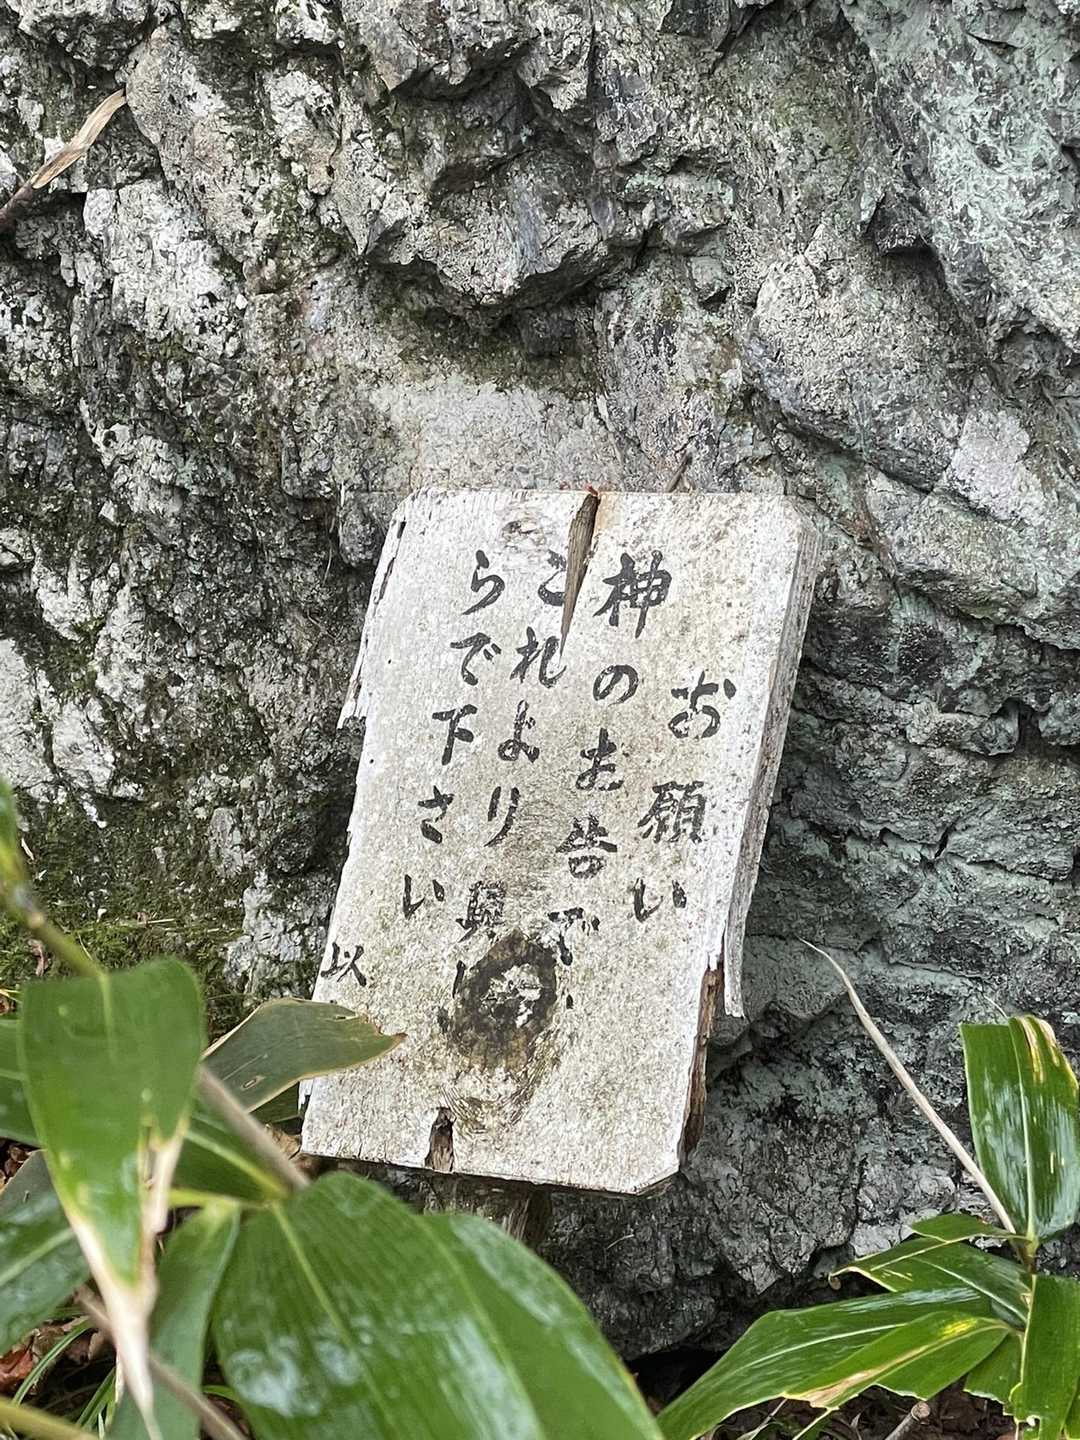 お願い
神のお告で
これより奥
らで下さい
以